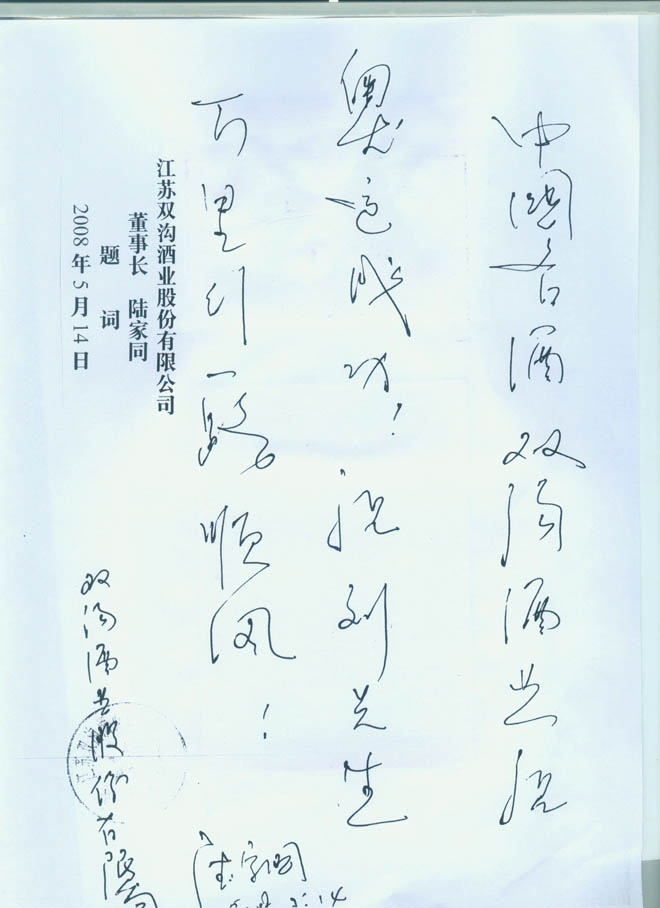 中国名酒双沟酒业祝
奥运成功！祝刘先生
万里行一路顺风！
江苏双沟酒业股份有限公司
董事长 陆家同
题 词
2008年5月14日
双沟酒业股份有限公司
陆家同
5.14